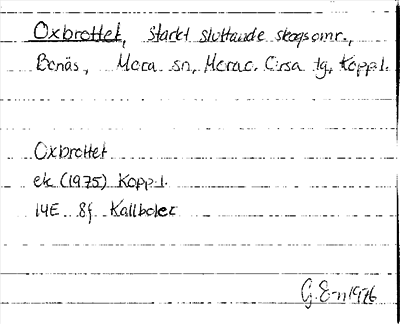 Oxbrottet, starkt sluttande skogsomr.,
Bonäs, Mora sn, Mora o. Orsa tg, Kopp.l.
Oxbrottet
ek (1975) Kopp.l.
14E 8f Kallboler
G. E-n 1976